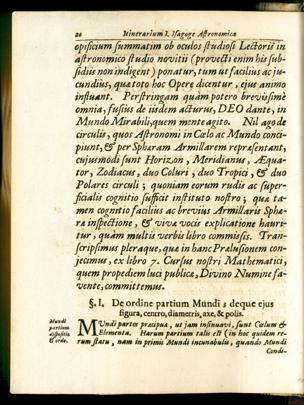 20 Itinerarium I. Isagoge Astronomica
opificium summatim ob oculos studiosi Lectoris in
astronomico studio novitii (provecti enim his sub-
sidiis non indigent) ponatur, tum ut facilius ac ju-
cundius, qua toto hoc Opere dicentur, ejus animo
influant. Perstringam quàm potero brevissimè
omnia, fusius de iisdem acturus, DEO dante, in
Mundo Mirabili, quem mente agito. Nil ago de
circulis, quos Astronomi in Cœlo ac Mundo conci-
piunt, & per Sphæram Armillarem repræsentant,
cujusmodi sunt Horizon, Meridianus, Æqua-
tor, Zodiacus, duo Coluri, duo Tropici, & duo
Polares circuli; quoniam eorum rudis ac super-
ficialis cognitio sufficit instituto nostro; quæ ta-
men cognitio faciliùs ac breviùs Armillaris Sphæ-
ræ inspectione, & vivæ vocis explicatione hauri-
tur, quàm multis verbis libro commissis. Tran-
scripsimus pleraque, quæ in hanc Prælusionem con-
jecimus, ex libro 7. Cursus nostri Mathematici,
quem propediem luci publicæ, Divino Numine fa-
vente, committemus.
§. I. De ordine partium Mundi; deque ejus
figura, centro, diametris, axe, & polis.
Mundi
partium
dispositio
& ordo.
MUndi partes præcipuæ, ut jam insinuavi, sunt Cœlum &
Elementa. Harum partium talis est (in hoc quidem re-
rum statu, nam in primis Mundi incunabulis, quando Mundi
Condi-